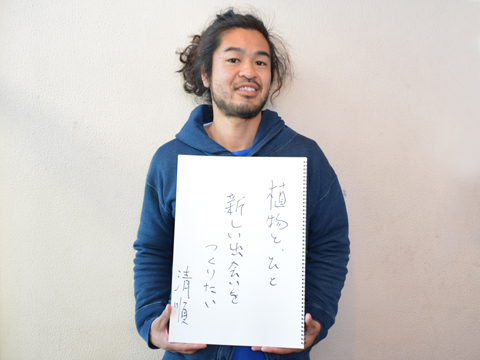 植物と、ひと
新しい出会いを
つくりたい
清順